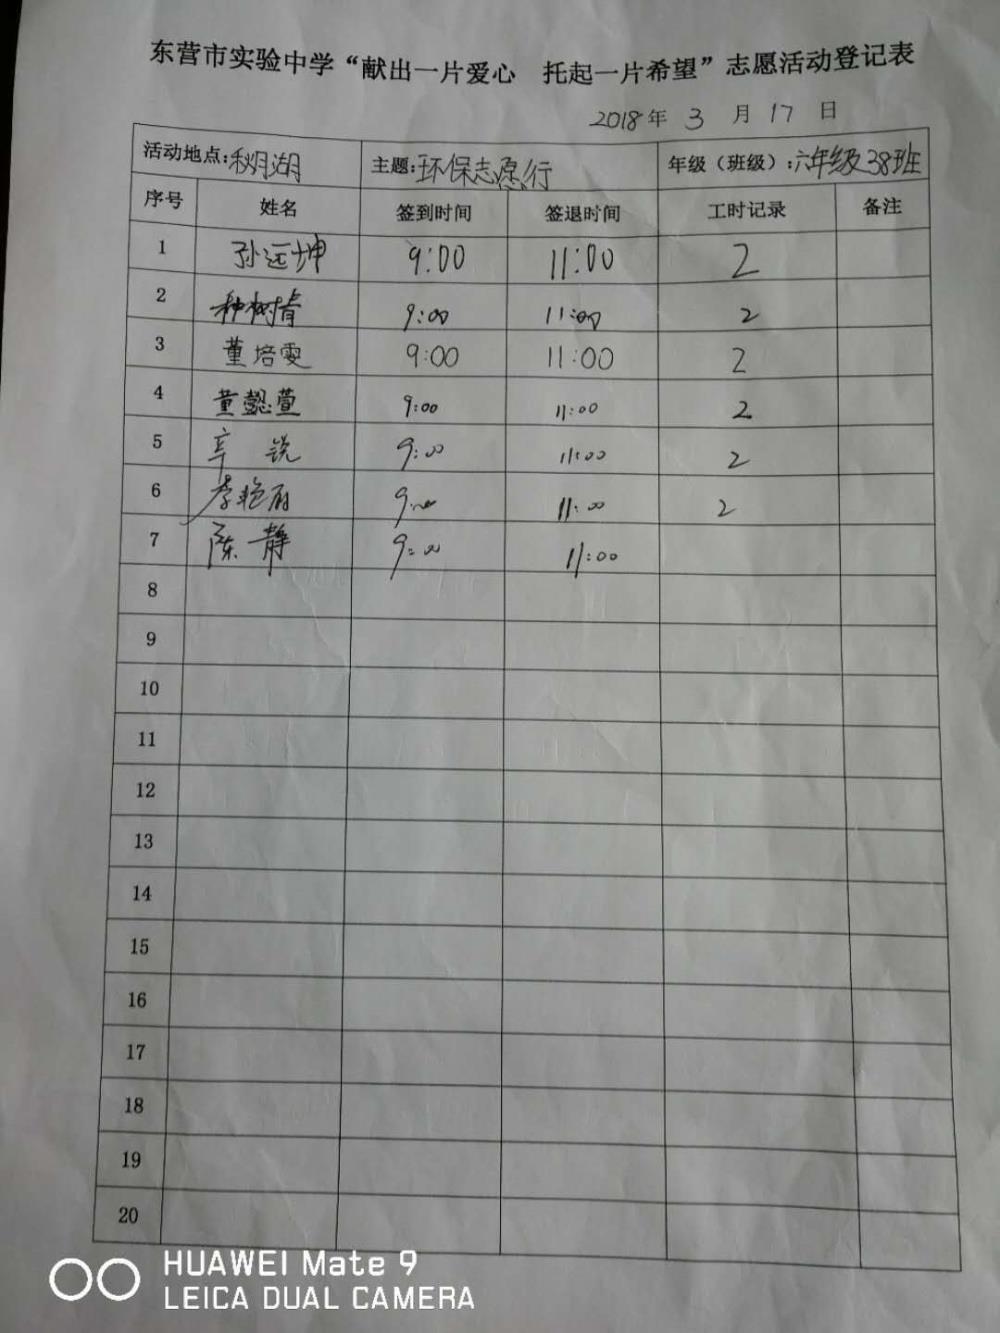 东营市实验中学“献出一片爱心 托起一片希望”志愿活动登记表
2018年 3 月 17 日
活动地点:秋月湖 主题:环保志愿行 年级（班级）:六年级38班
序号 姓名 签到时间 签退时间 工时记录 备注
1 孙运坤 9:00 11:00 2
2 种树青 9:00 11:00 2
3 董培雯 9:00 11:00 2
4 董懿萱 9:00 11:00 2
5 辛锐 9:00 11:00 2
6 李艳 9:00 11:00 2
7 陈静 9:00 11:00
8
9
10
11
12
13
14
15
16
17
18
19
20
HUAWEI Mate 9
LEICA DUAL CAMERA